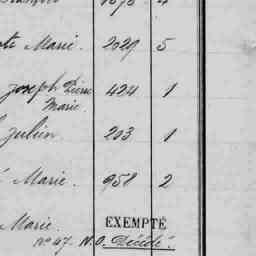 Marie. 2029 5
Joseph Pierre 424 1
Marie
Julien 203 1
Marie. 958 2
Marie. EXEMPTÉ
N° 47. N.O. Décédé.